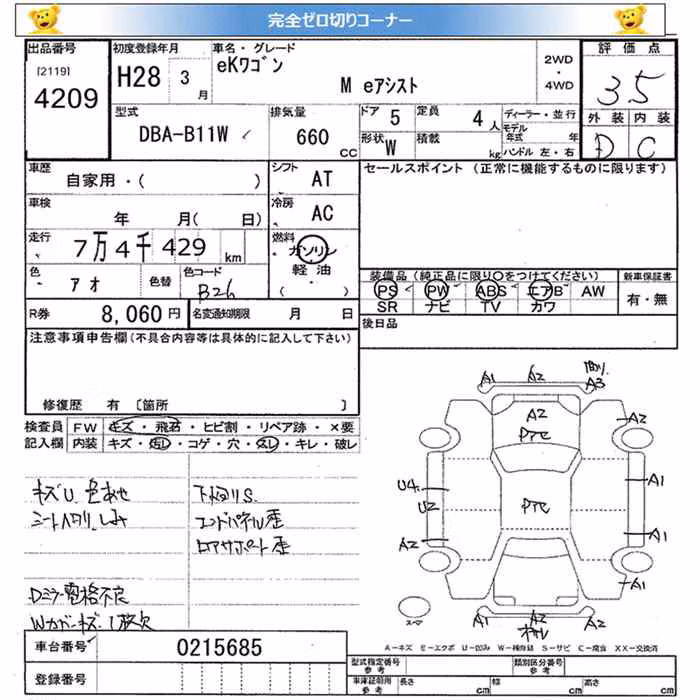 完全ゼロ切りコーナー
出品番号
[2119]
4209
初度登録年月
H28 3月
車名・グレード
eKワゴン
M eアシスト
2WD・4WD
評価点
3.5
外装 内装
D C
型式
DBA-B11W
排気量
660 CC
ドア 5
定員 4人
形状 W
積載 kg
ディーラー・並行
モデル年式 年
ハンドル 左・右
車歴
自家用・( )
シフト AT
車検
年 月( 日)
冷房 AC
走行
7万4千429 km
燃料
ガソリン
軽油
( )
色
アオ
色替
色コード
B26
R券 8,060円
名変通知期限 月 日
セールスポイント (正常に機能するものに限ります)
装備品 (純正品に限り○をつけてください)
PS PW ABS エアB AW
SR ナビ TV カワ
新車保証書
有・無
後日品
注意事項申告欄(不具合内容等は具体的に記入して下さい)
修復歴 有 〔箇所 〕
検査員記入欄
FW キズ・飛石・ヒビ割・リペア跡・×要
内装 キズ・汚レ・コゲ・穴・スレ・キレ・破レ
キズU 色あせ
シートヘタリ、しみ
下回りS.
エンドパネル歪
ロアサポート歪
Dミラー電格不良
Wカバーキズ 1枚欠
A1 A2 A3
A2
PTて
A2
U4
U2
A2
PTて
A1
A1
A1
A1 A2 A1
スペア
A-キズ E-エクボ U-凹み W-補修跡 S-サビ C-腐食 XX-交換済
車台番号 0215685
登録番号
型式指定番号 参考
類別区分番号 参考
車庫証明用 参考
長さ cm 幅 cm 高さ cm